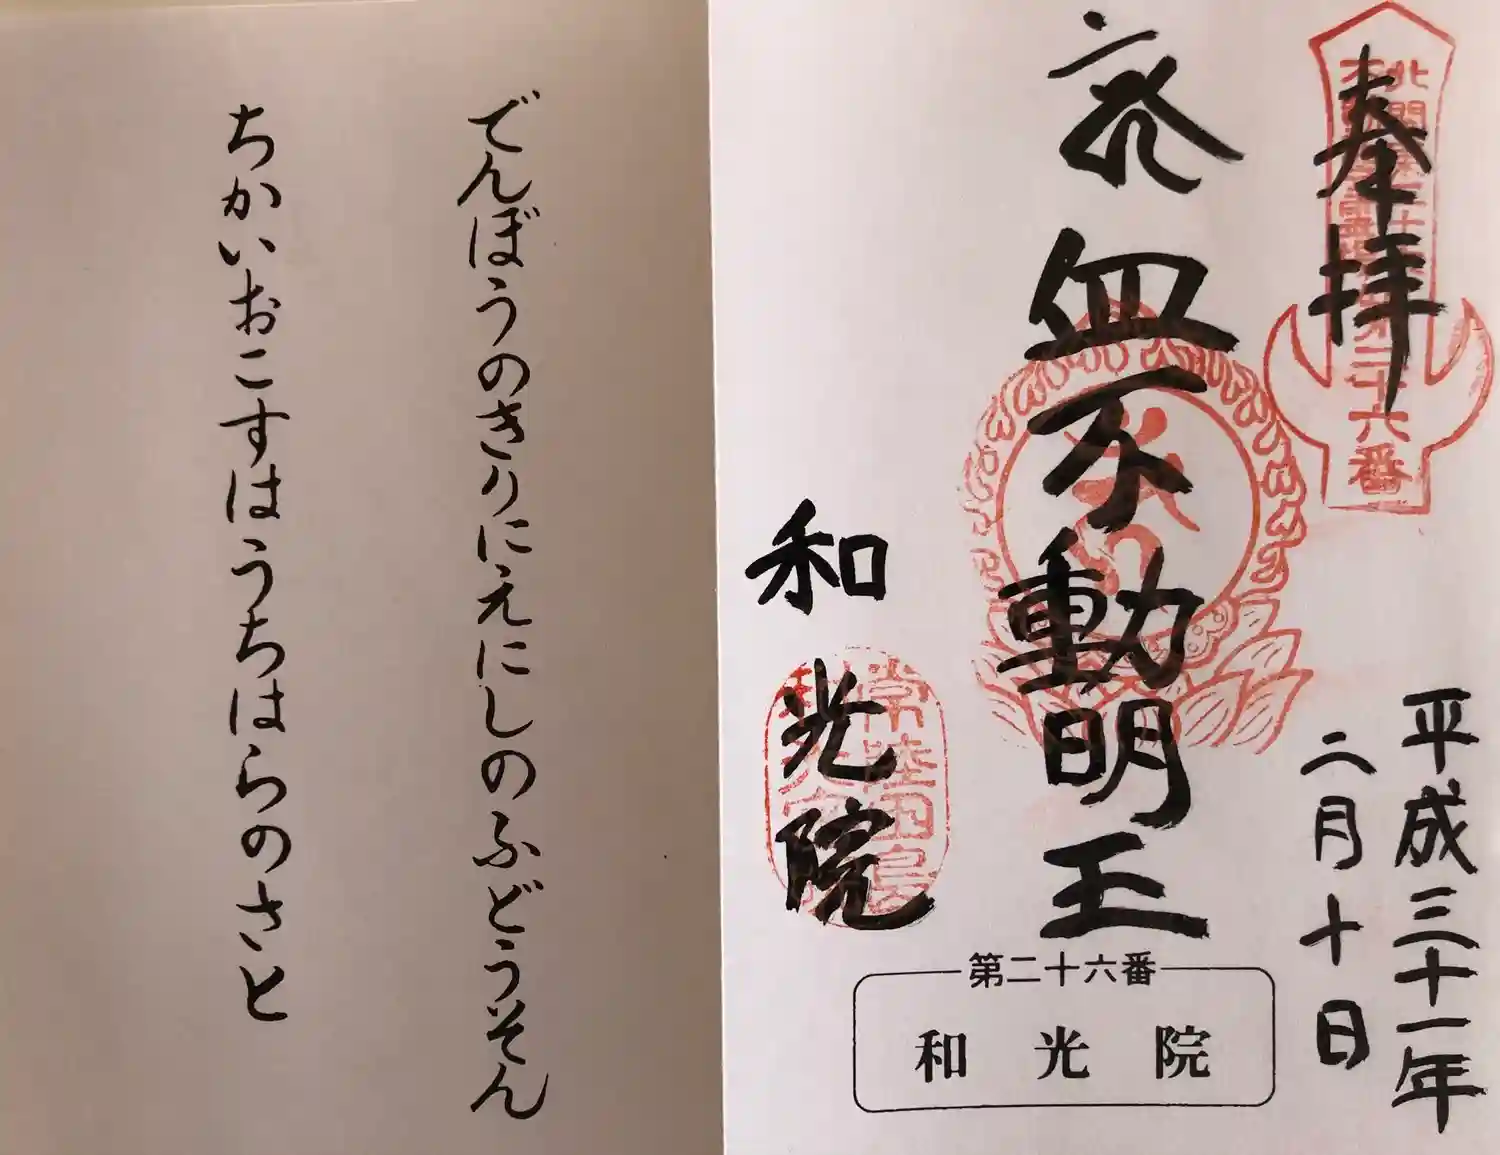 奉拝
第二十六番
平成三十一年
二月十日
不動明王
和光院
常陸田島
第二十六番
和光院
でんぼうのきりにえにしのふどうそん
ちかいおこすはうちはらのさと